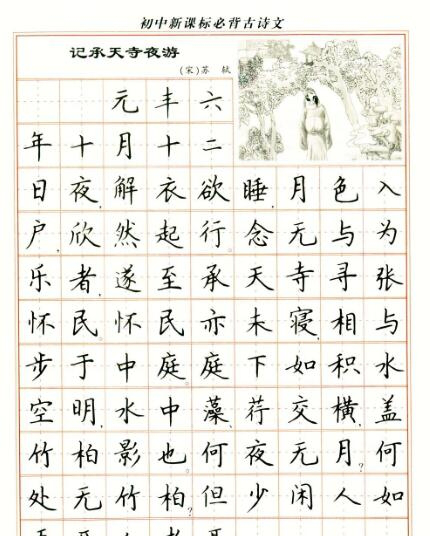 初中新课标必背古诗文
记承天寺夜游
(宋)苏 轼
元丰六
年十月十二
日夜,解衣欲睡,月色入
户,欣然起行。念无与为
乐者,遂至承天寺寻张
怀民。怀民亦未寝,相与
步于中庭。庭下如积水
空明,水中藻、荇交横,盖
竹柏影也。何夜无月?何
处无竹柏?但少闲人如